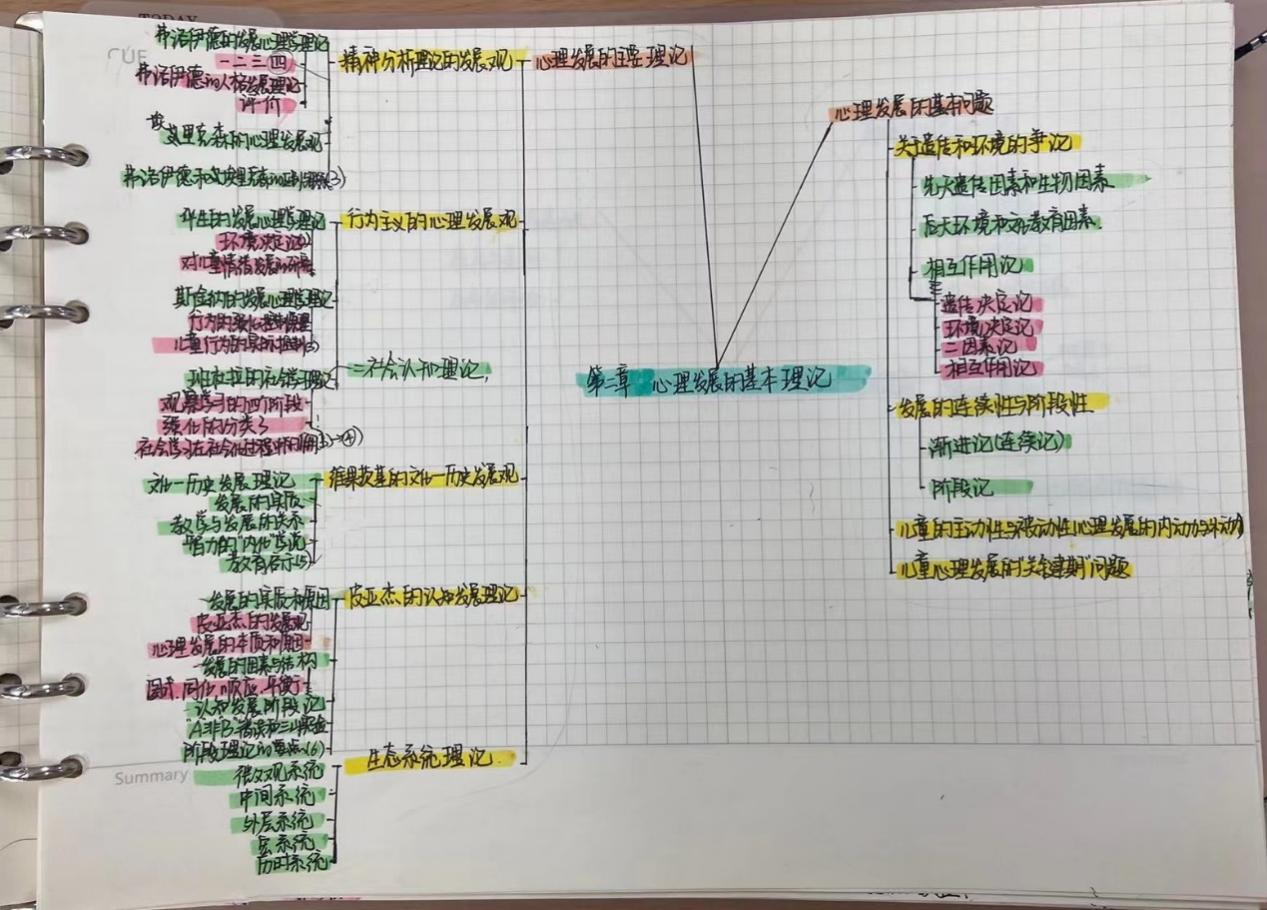 TODAY
CUE
第二章 心理发展的基本理论
心理发展的主要理论
精神分析理论的发展观
弗洛伊德的发展心理学理论
一二三四
弗洛伊德的人格发展理论
评价
埃
艾里克森的心理发展观
弗洛伊德和艾埃里克森的
行为主义的心理发展观
华生的发展心理学理论
环境决定论
对儿童情绪发展的研究
斯金纳的发展心理学理论
行为的强化控制原理
儿童行为的实际控制(3)
社会认知理论
班杜拉的社会学习理论
观察学习的四个阶段
强化的分类 3
社会学习在社会化过程中的作用 → ④
维果茨基的文化一历史发展观
文化一历史发展理论
发展的实质
教学与发展的关系
智力的"内化"学说
教育启示(5)
皮亚杰的认知发展理论
发展的实质和原因
皮亚杰的发展观
心理发展的本质和原因
发展的因素与结构
图式.同化.顺应.平衡
认知发展阶段论
"A非B"错误和三山实验
阶段理论的要点(6)
生态系统理论
微观系统
中间系统
外层系统
宏系统
历时系统
心理发展的基本问题
关于遗传和环境的争论
先天遗传因素和生物因素
后天环境和教育因素
相互作用论
遗传决定论
环境决定论
二因素论
相互作用论
发展的连续性与阶段性
渐进论(连续论)
阶段论
儿童的主动性与被动性(心理发展的内动力与外动力)
儿童心理发展的"关键期"问题
Summary